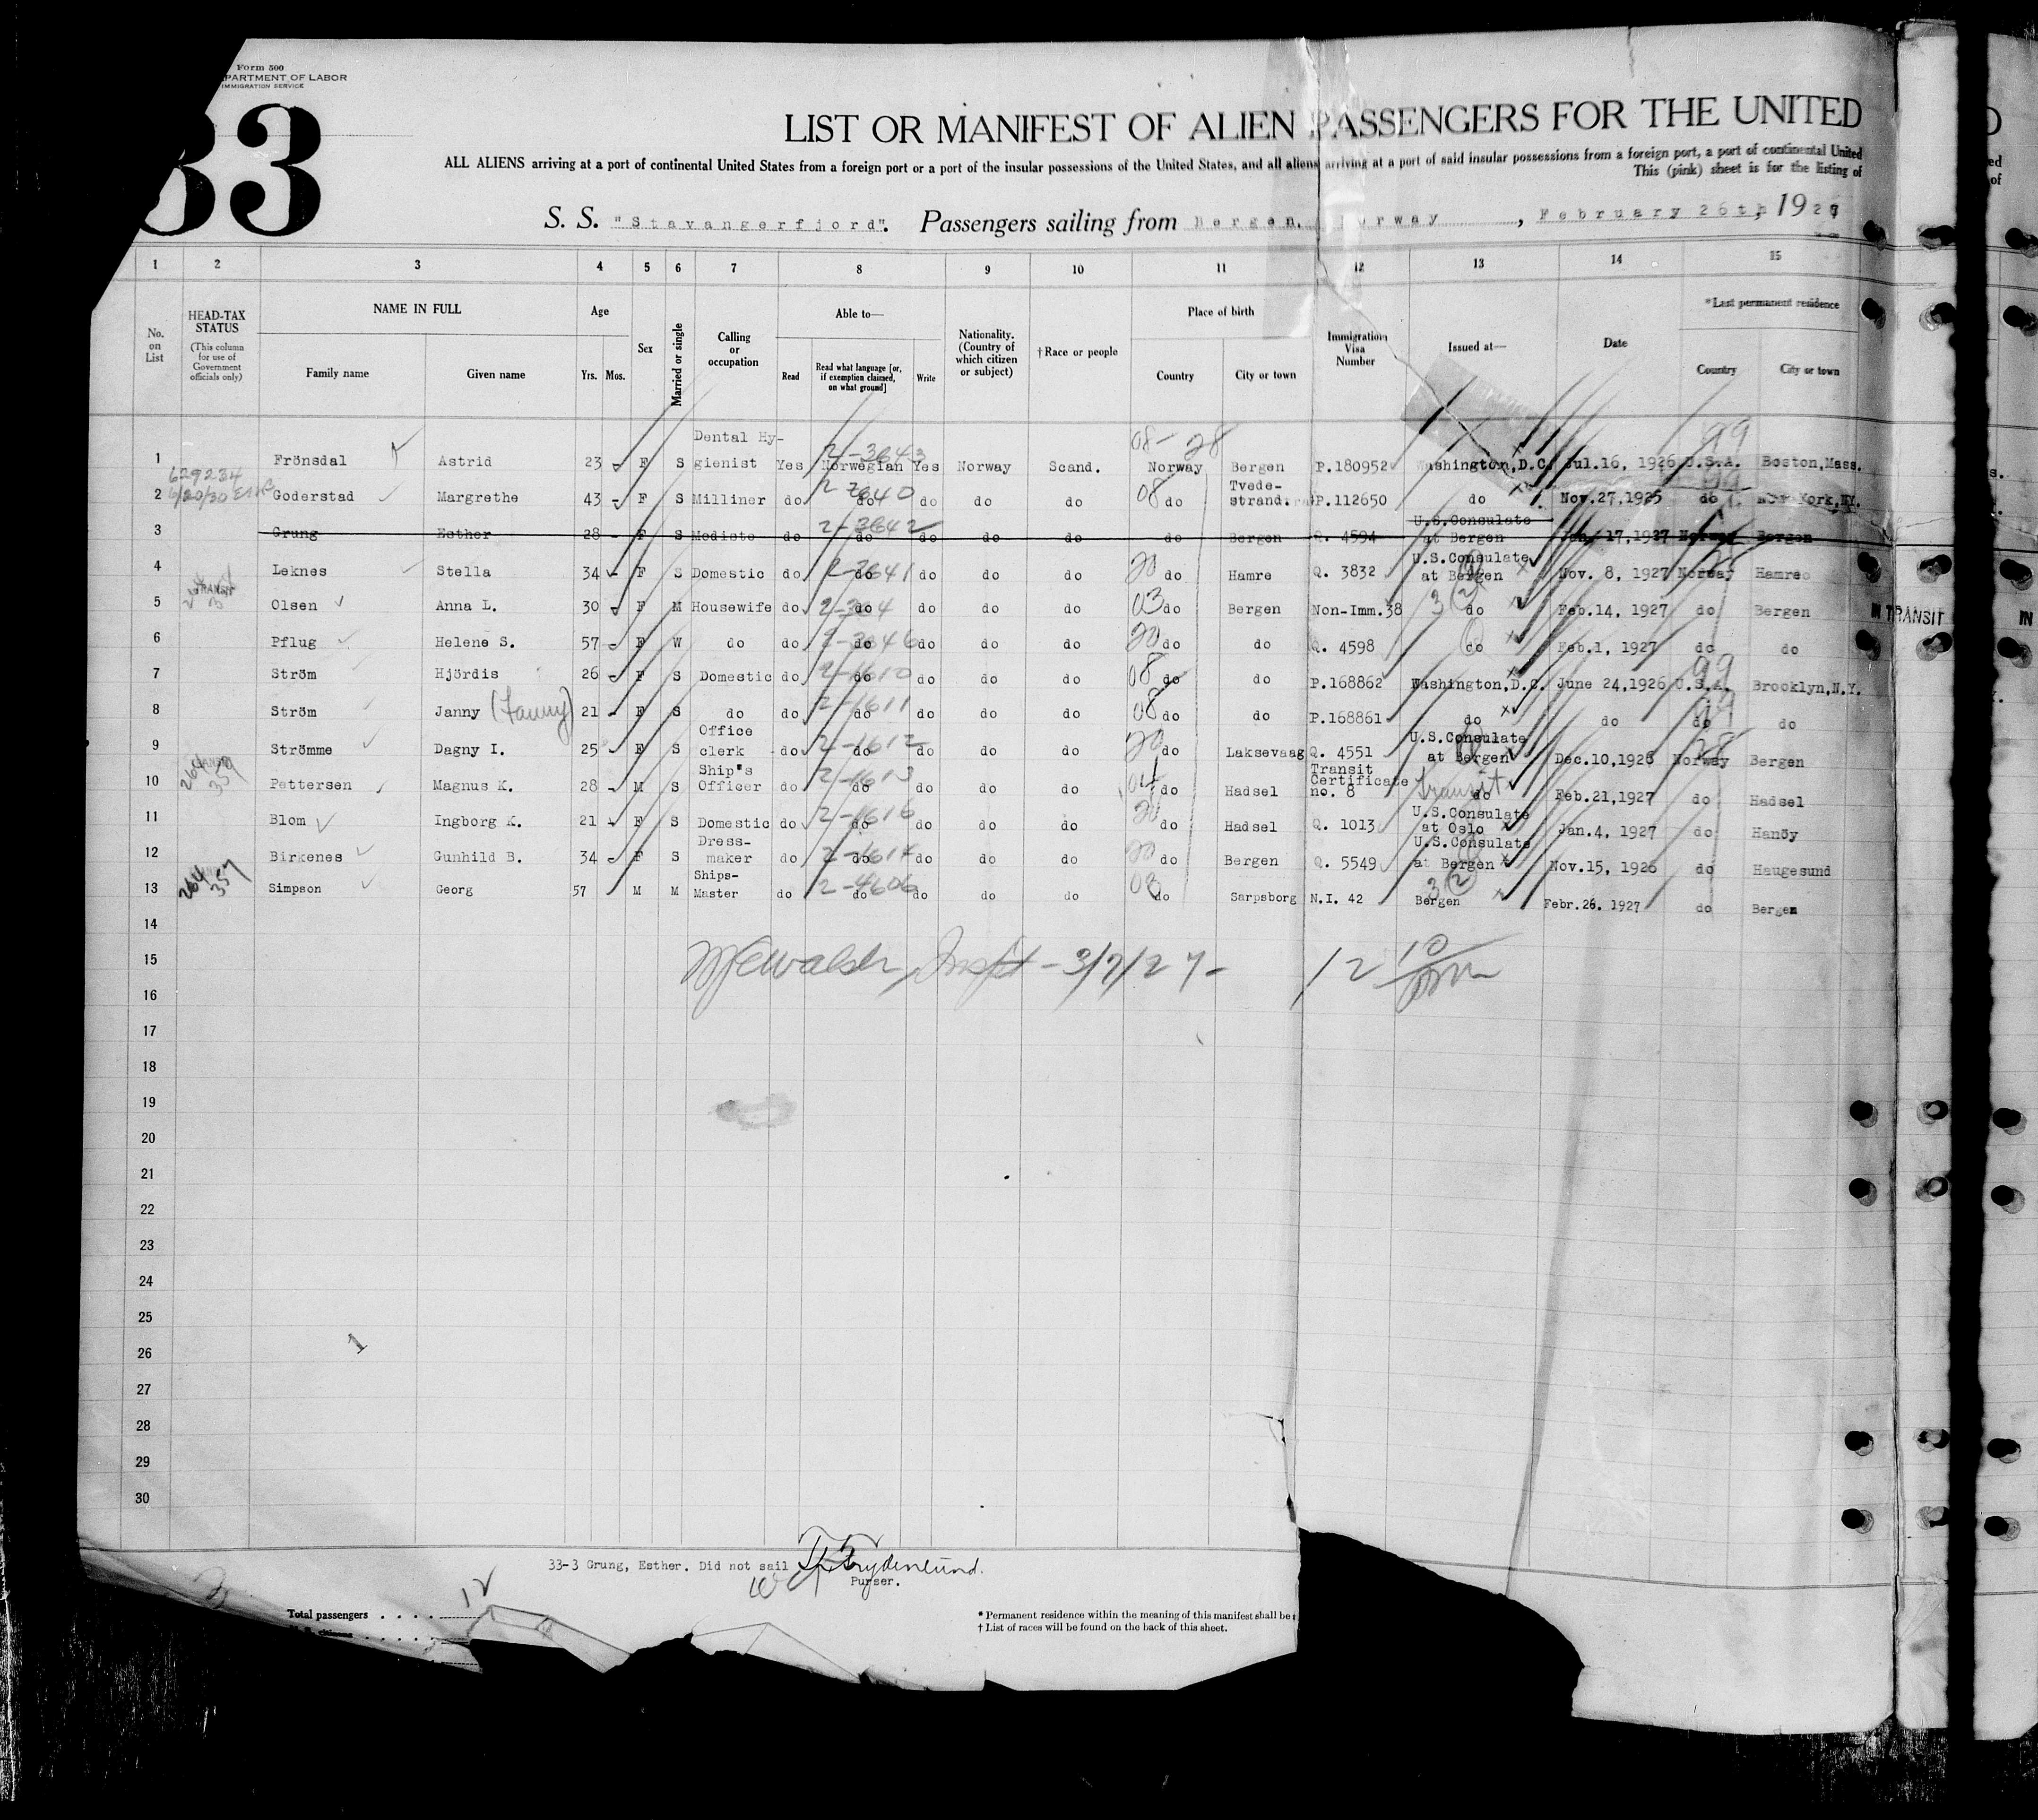 Form 500
PARTMENT OF LABOR
IMMIGRATION SERVICE
33
LIST OR MANIFEST OF ALIEN PASSENGERS FOR THE UNITED
ALL ALIENS arriving at a port of continental United States from a foreign port or a port of the insular possessions of the United States, and all aliens arriving at a port of said insular possessions from a foreign port, a port of continental United
This (pink) sheet is for the listing of
S. S. "Stavangerfjord". Passengers sailing from Bergen, Norway, February 26th, 1927
1 2 3 4 5 6 7 8 9 10 11 12 13 14 15
No. on List
HEAD-TAX STATUS (This column for use of Government officials only)
NAME IN FULL Family name Given name
Age Yrs. Mos.
Sex
Married or single
Calling or occupation
Able to— Read Read what language [or, if exemption claimed, on what ground] Write
Nationality. (Country of which citizen or subject)
†Race or people
Place of birth Country City or town
Immigration Visa Number
Issued at—
Date
*Last permanent residence Country City or town
08- 28 99
1 Frönsdal Astrid 23 F S Dental Hy-gienist Yes Norwegian 2-3643 Yes Norway Scand. Norway Bergen P.180952 Washington, D.C. Jul.16, 1926 U.S.A. Boston, Mass.
629234
6/20/30
2 Goderstad Margrethe 43 F S Milliner do do do do do 08 do Tvede-strand. P.112650 do Nov.27,1925 do New York, NY.
3 Grung Esther 28 F S Modiste do 2-3642 do do do do do Bergen Q. 4594 U.S.Consulate at Bergen Jan. 17,1927 Norway Bergen
4 Leknes Stella 34 F S Domestic do 2-3641 do do do do 20 do Hamre Q. 3832 U.S.Consulate at Bergen Nov. 8, 1927 Norway Hamre
5 TRANSIT Olsen Anna L. 30 F M Housewife do do do do do 03 do Bergen Non-Imm.38 3 (2) do Feb.14, 1927 do Bergen IN TRANSIT IN
6 Pflug Helene S. 57 F W do do 2-3646 do do do do 20 do do Q. 4598 do Feb.1, 1927 do do
7 Ström Hjördis 26 F S Domestic do 2-1610 do do do do 08 do do P.168862 Washington, D.C. June 24,1926 U.S.A. 99 Brooklyn,N.Y.
8 Ström Janny (Fanny) 21 F S do do 2-1611 do do do do 08 do do P.168861 do do do do
9 Strömme Dagny I. 25 F S Office clerk do 2-1612 do do do do 20 do Laksevaag Q. 4551 U.S.Consulate at Bergen Dec.10,1926 Norway 28 Bergen
10 264 359 Pettersen Magnus K. 28 M S Ship's Officer do 2-1613 do do do do 04 do Hadsel Transit Certificate no. 8 Transit do Feb.21,1927 do Hadsel
11 Blom Ingborg K. 21 F S Domestic do 2-1616 do do do do 20 do Hadsel Q. 1013 U.S.Consulate at Oslo Jan.4, 1927 do Hanöy
12 Birkenes Gunhild B. 34 F S Dress-maker do 2-1614 do do do do 20 do Bergen Q. 5549 U.S.Consulate at Bergen Nov.15, 1926 do Haugesund
13 264 357 Simpson Georg 57 M M Ships-Master do 2-4606 do do do do 03 do Sarpsborg N.I. 42 3 (2) Bergen Febr.26. 1927 do Bergen
14
15 Walsh, Inspt - 3/7/27- 12
16
17
18
19
20
21
22
23
24
25
26
27
28
29
30
33-3 Grung, Esther. Did not sail
Purser.
Total passengers . . . . 12
* Permanent residence within the meaning of this manifest shall be
† List of races will be found on the back of this sheet.